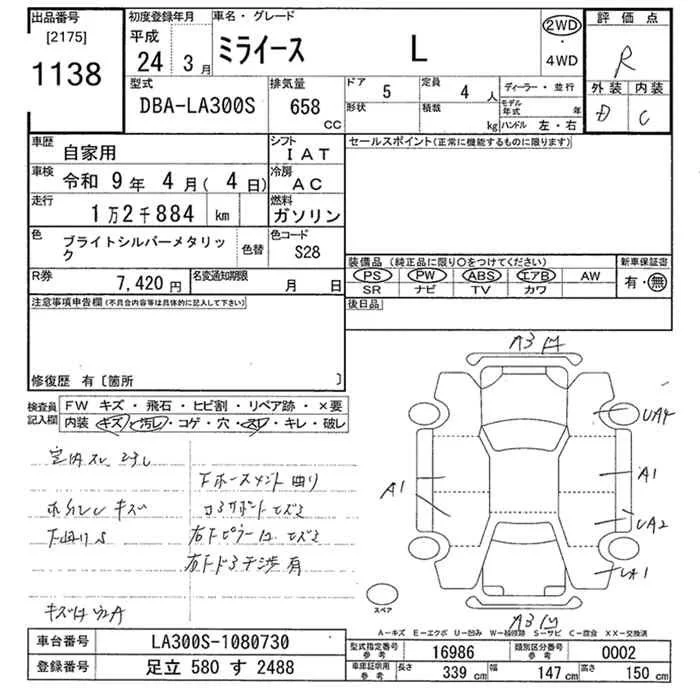 出品番号 初度登録年月 車名・グレード 2WD 評価点
[2175] 平成 ミライース L ・ R
1138 24年 3月 4WD
型式 排気量 ドア 5 定員 4人 ディーラー・並行 外装 内装
DBA-LA300S 658 CC 形状 積載 kg モデル年式 年 D C
ハンドル 左・右
車歴 自家用 シフト IAT セールスポイント(正常に機能するものに限ります)
車検 令和 9年 4月( 4日) 冷房 AC
走行 1万2千884 km 燃料 ガソリン
色 ブライトシルバーメタリック 色替 色コード S28
装備品(純正品に限り○をつけてください) 新車保証書
R券 7,420円 名変通知期限 月 日 PS PW ABS エアB AW 有・無
SR ナビ TV カワ
注意事項申告欄(不具合内容等は具体的に記入して下さい) 後日品
修復歴 有〔箇所 〕
検査員記入欄 FW キズ・飛石・ヒビ割・リペア跡・×要
内装 キズ・汚レ・コゲ・穴・スレ・キレ・破レ
A3
UA4
A1 A1
UA2
UA1
スペア
A3
室内スレ
キズ
下廻りS
右ドア干渉有
A-キズ E-エクボ U-凹み W-補修跡 S-サビ C-腐食 XX-交換済
車台番号 LA300S-1080730 型式指定番号 参考 16986 類別区分番号 参考 0002
登録番号 足立 580 す 2488 車庫証明用 参考 長さ 339 cm 幅 147 cm 高さ 150 cm